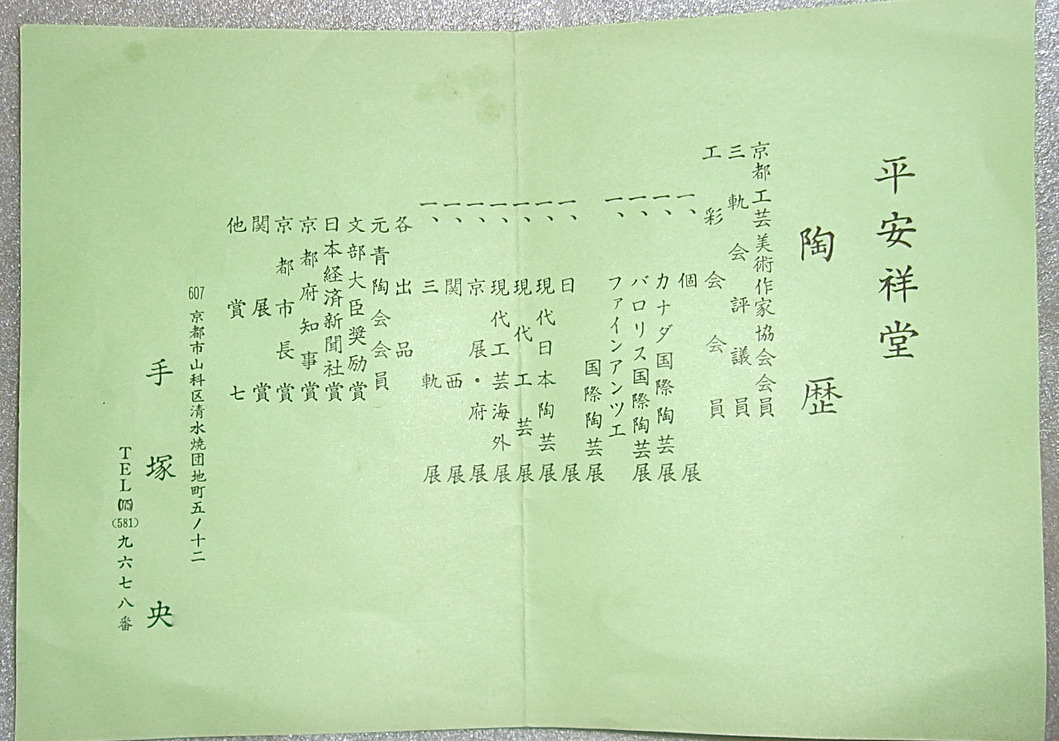 平安祥堂
陶歴
京都工芸美術作家協会会員
三軌会評議員
工彩会会員
一、個展
一、カナダ国際陶芸展
一、バロリス国際陶芸展
一、ファインアンツエ
国際陶芸展
一、日展
一、現代日本陶芸展
一、現代工芸展
一、現代工芸海外展
一、京展・府展
一、関西展
一、三軌展
各出品
元青陶会会員
文部大臣奨励賞
日本経済新聞社賞
京都府知事賞
京都市長賞
関展賞
他賞七
607 京都市山科区清水焼団地町五ノ十二
手塚央
TEL(075)(581)九六七八番